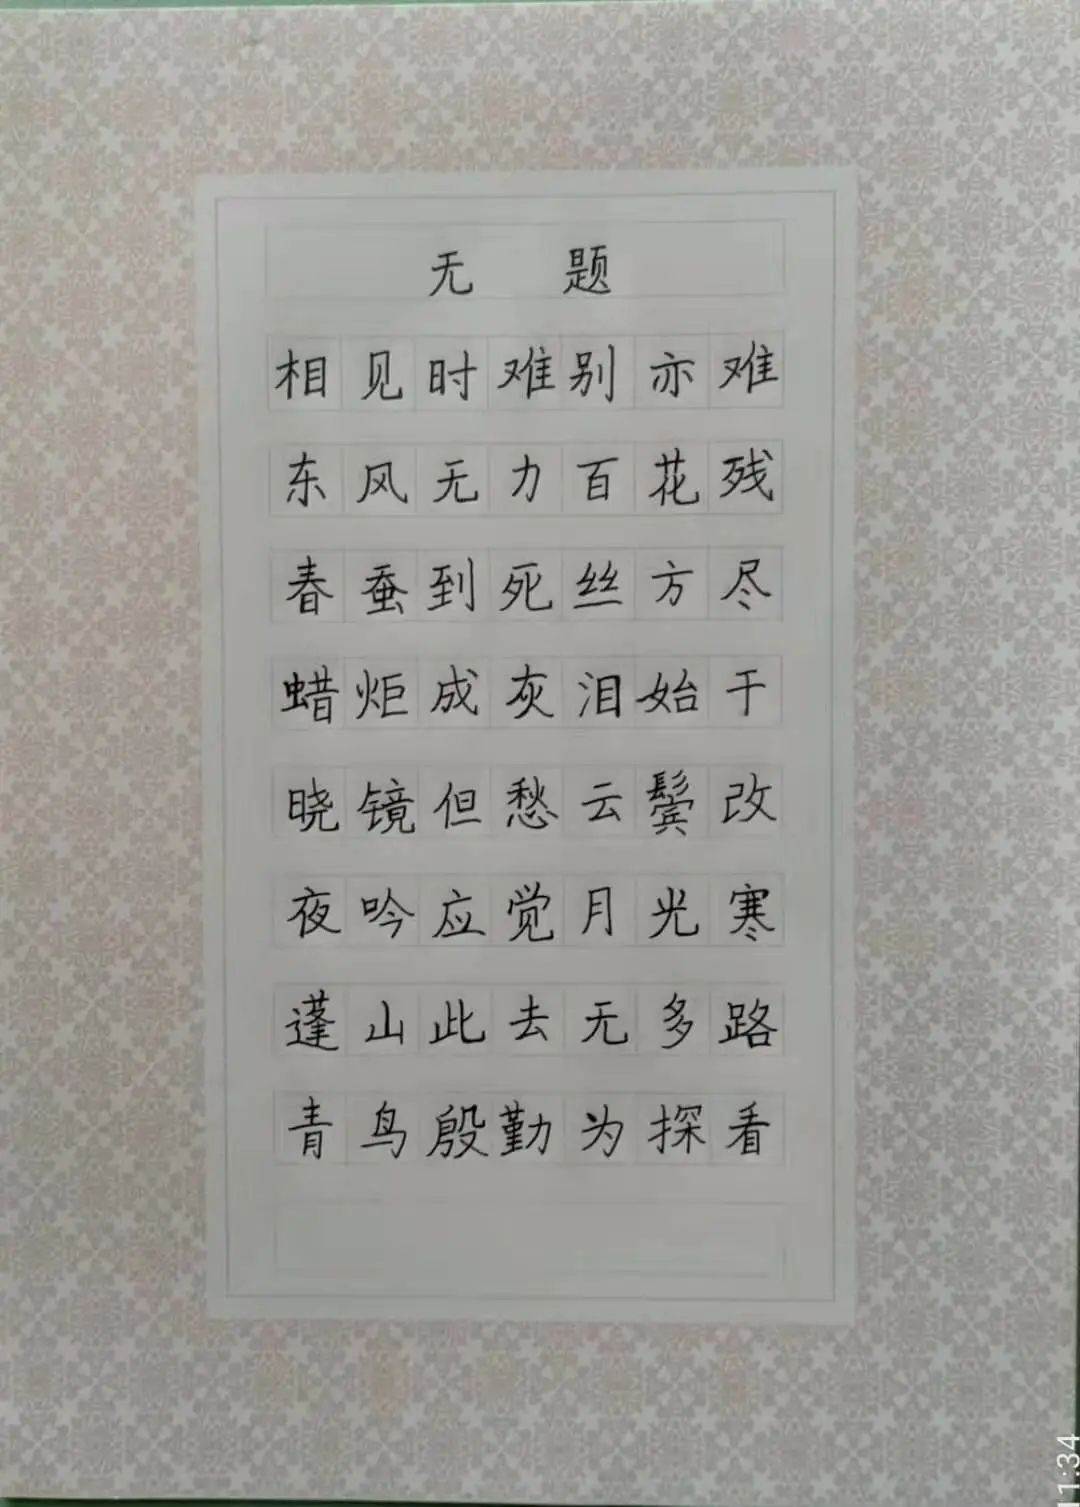 无 题
相见时难别亦难
东风无力百花残
春蚕到死丝方尽
蜡炬成灰泪始干
晓镜但愁云鬓改
夜吟应觉月光寒
蓬山此去无多路
青鸟殷勤为探看
11:34